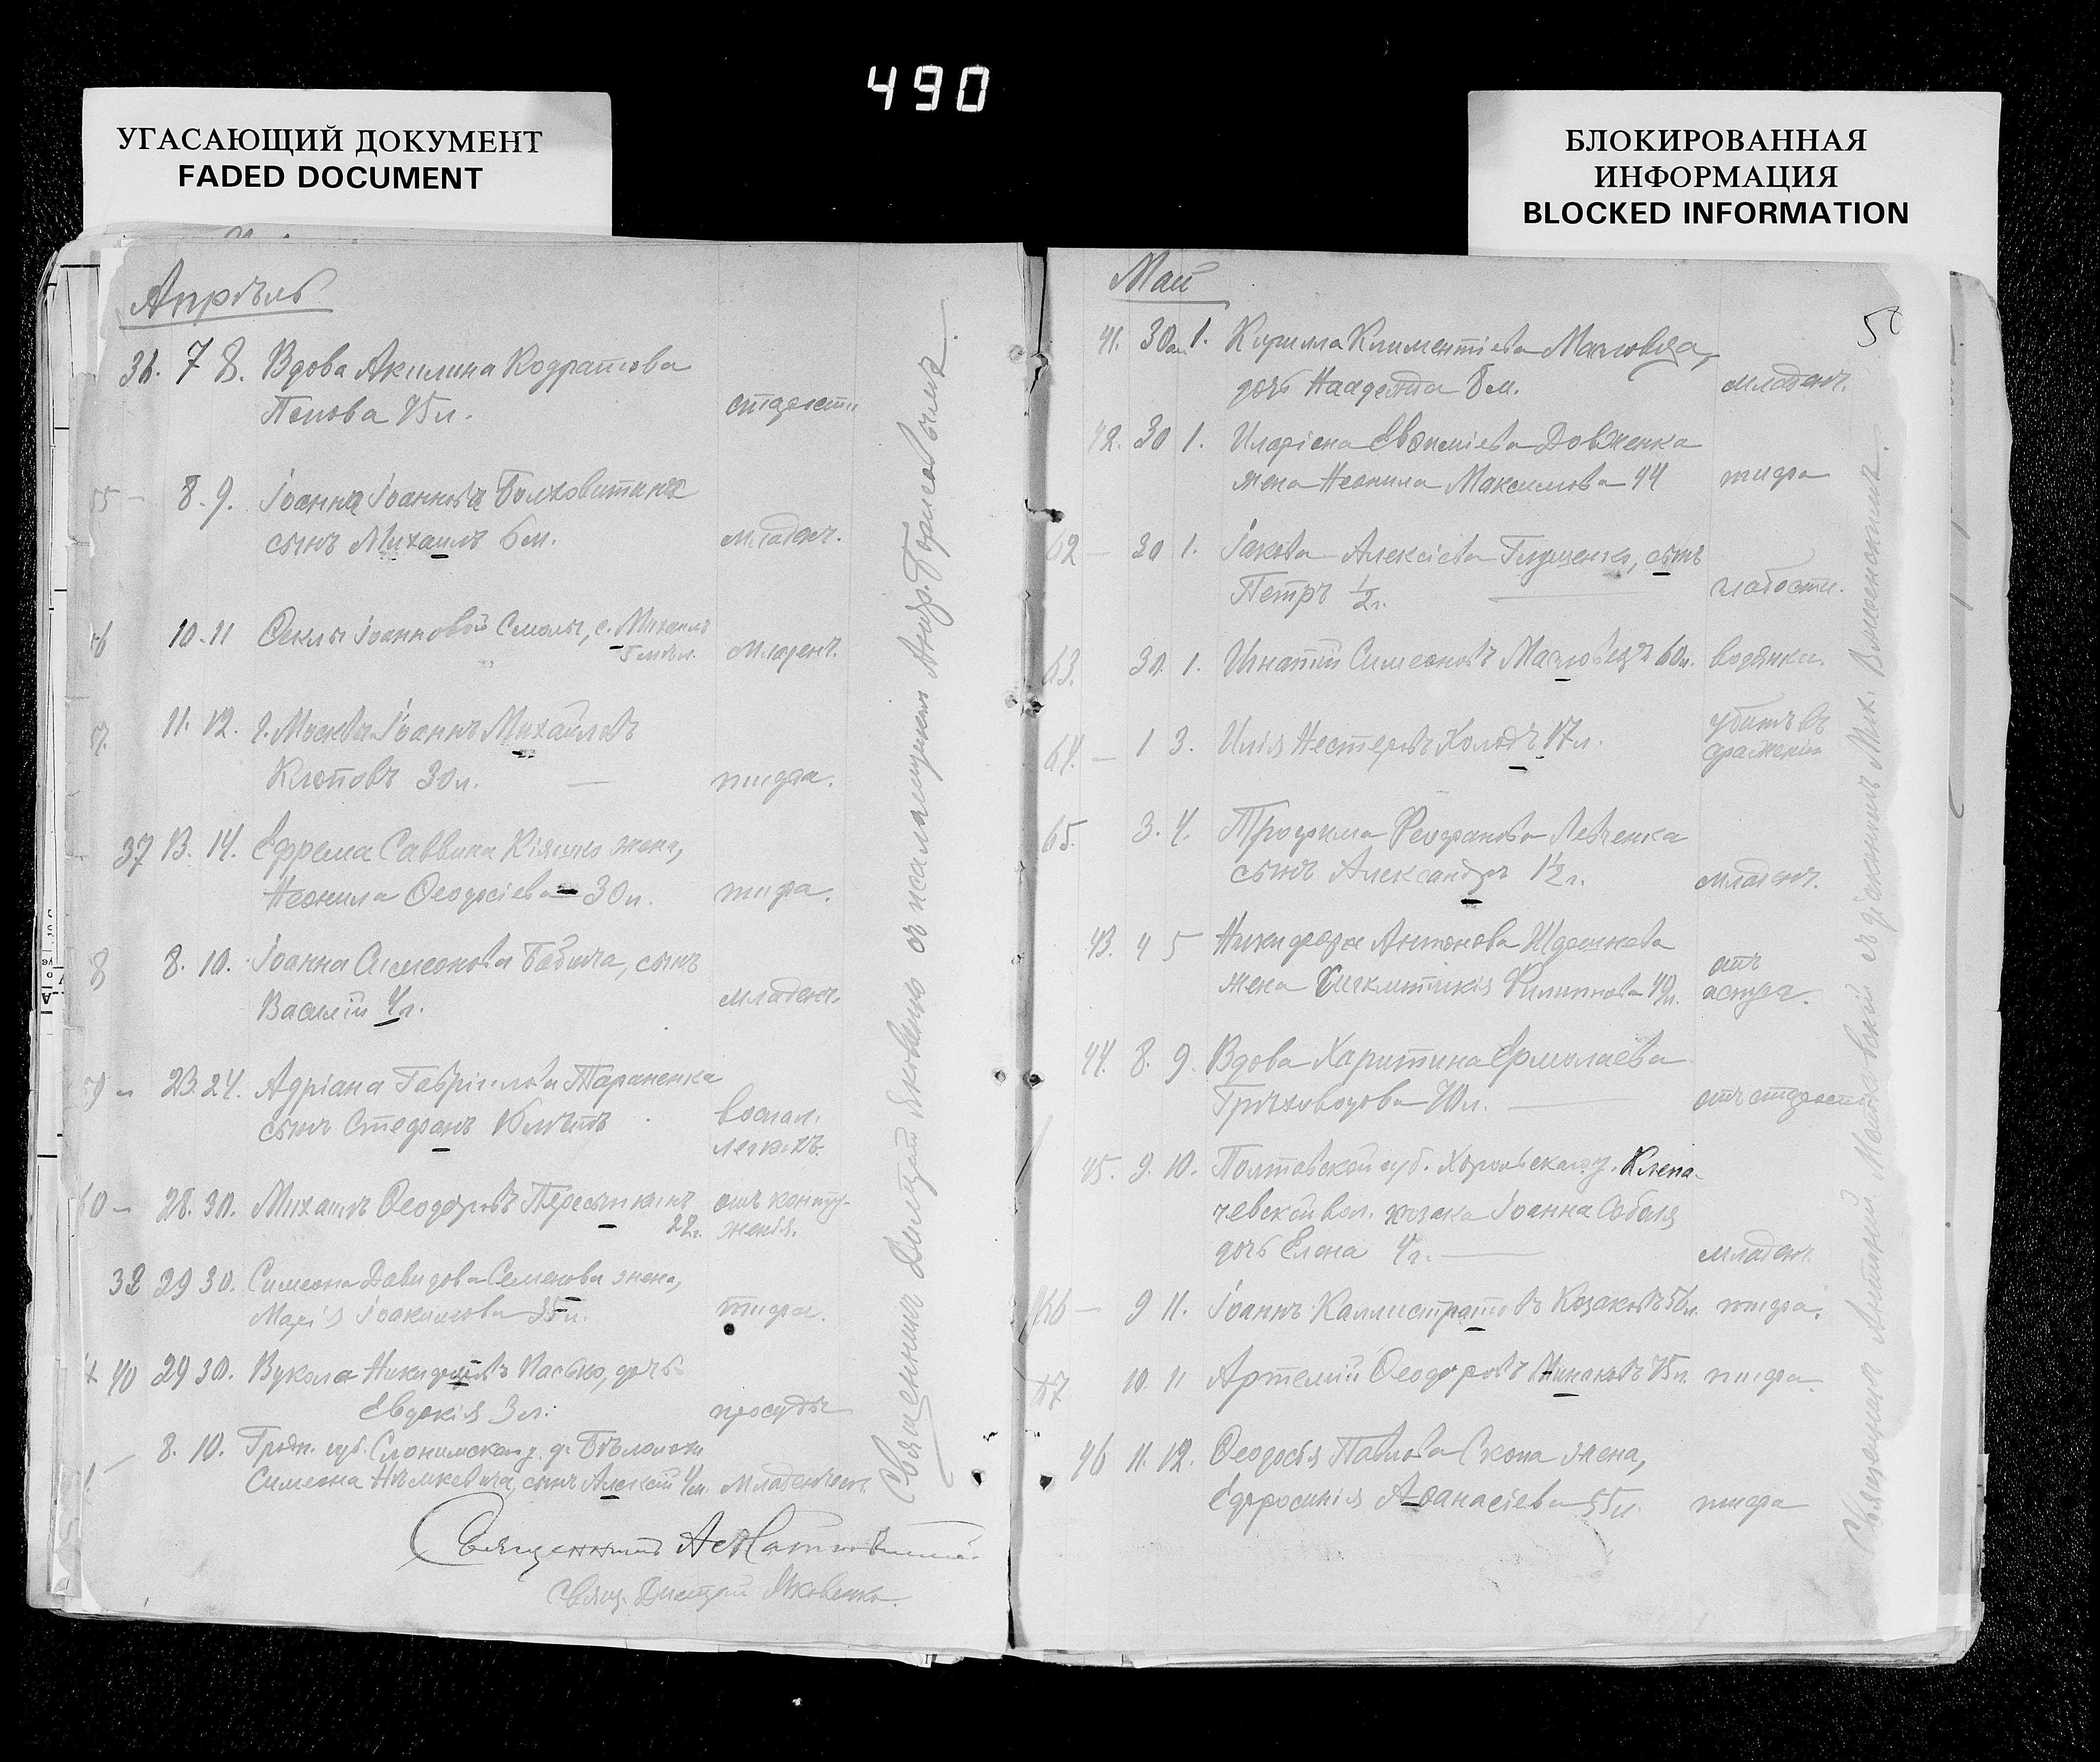 490
УГАСАЮЩИЙ ДОКУМЕНТ
FADED DOCUMENT
БЛОКИРОВАННАЯ
ИНФОРМАЦИЯ
BLOCKED INFORMATION
Апрѣль
36. 7 8. Вдова Акилина Кодратова
Попова 75 л. старости
55 – 8. 9. Іоанна Іоаннова Болховитина
сынъ Михаилъ 6 м. младенч.
10. 11 Ѳеклы Іоанновой Смолы, с. Михаилъ
младенч.
11. 12. г. Москва Іоаннъ Михайловъ
Клоповъ 30 л. — тифа.
37 13. 14. Ефрема Саввина Кіяшко жена,
Неонила Ѳеодосіева 30 л. тифа.
8 8. 10. Іоанна Симеонова Бабича, сынъ
Василій 4 г. младенч.
23. 24. Адріана Гавріилова Тараненка
сынъ Стефанъ воспал.
легкихъ.
60 – 28. 30. Михаилъ Ѳеодоровъ Пересыпкинъ отъ конту-
22 г. женія.
38 29 30. Симеона Давидова Семенова жена,
Марія Іоакимова 35 л. тифа.
40 29 30. Вукола Никифорова Пасько, дочь
Евдокія 3 л. простуды
8. 10. Гродн. губ. Слонимскаго у. д.
Симеона сынъ Алексій младенческ.
Священникъ А. Матковскій
Свящ. Димитрій Яковенко.
Священникъ Димитрій Яковенко съ псаломщикомъ Андр. Борисовымъ.
Май
5
41. 30 ап. 1. Кирилла Климентіева Маловца,
дочь Надежда 8 м. младенч.
42. 30 1. Иларіона Евфиміева Довженка
жена Неонила Максимова 44 тифа
62 – 30 1. Іакова Алексіева Глущенко, сынъ
Петръ ½ г. — слабости.
63. 30. 1. Игнатій Симеоновъ 60 л. водянки.
64. – 1 3. Илія Нестеровъ Холодъ 17 л. убитъ въ
сраженіи
65. 3. 4. Трофима Ѳеофанова Левченка
сынъ Александръ 1½ г. младенч.
43. 4 5 Никифора Антонова
жена Синклитикія Филиппова 49 л. отъ
астма.
44. 8. 9. Вдова Харитина Ермолаева
Грѣховодова 70 л. — отъ старости
45. 9. 10. Полтавской губ. Хорольскаго у. Клепа-
чевской вол. козака Іоанна Соболя
дочь Елена 4 г. — младенч.
66 – 9 11. Іоаннъ Каллистратовъ Козаковъ 56 л. тифа.
67 10. 11 Артемій Ѳеодоровъ Минаковъ 75 л. тифа.
46 11. 12. Ѳеодосія Павлова Скопа жена,
Ефросинія Аѳанасіева 55 л. тифа
Священникъ Антоній Матковскій съ діакономъ Мих.